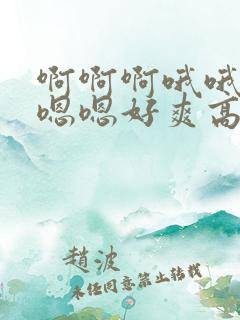 啊啊啊哦哦
嗯嗯好爽高
趙波
未经同意禁止转载